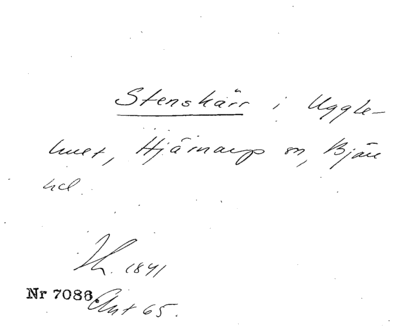 Stenskärr i Uggle-
hult, Hjärnarp sn, Bjäre
hd.
Jh. 1841
Nr 7086. Ant 65.